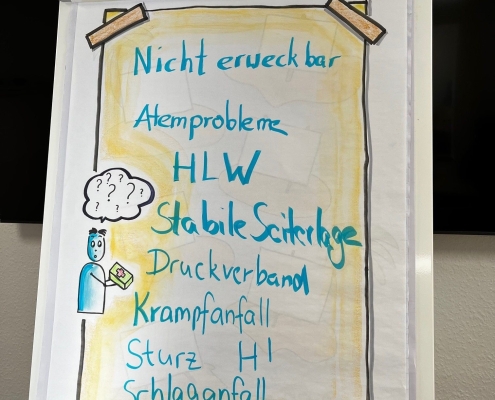 Nicht erweckbar
Atemprobleme
HLW
Stabile Seitenlage
Druckverband
Krampfanfall
Sturz HI
Schlaganfall
? ? ? ? ?